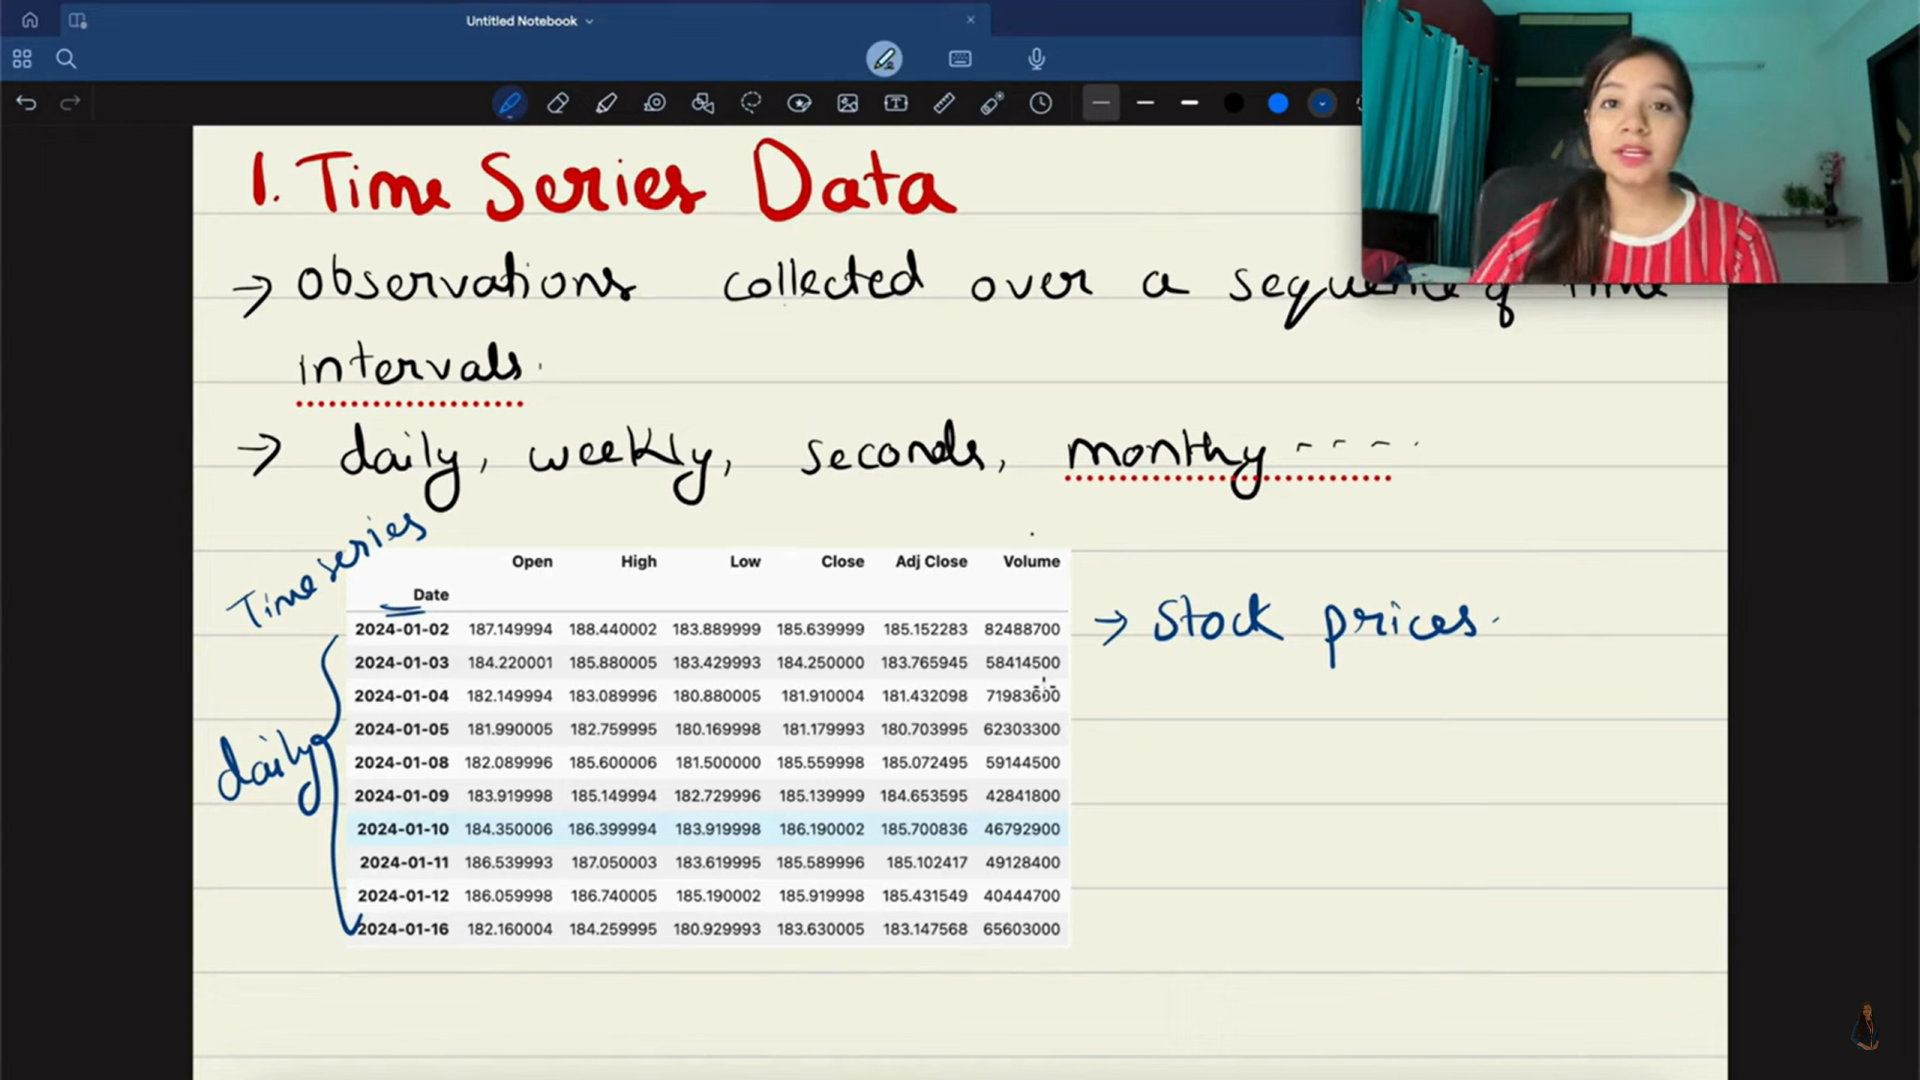 Untitled Notebook
1. Time Series Data
→ observations collected over a sequence of time
intervals.
→ daily, weekly, seconds, monthy ----
Time series
Open High Low Close Adj Close Volume
Date
2024-01-02 187.149994 188.440002 183.889999 185.639999 185.152283 82488700
→ Stock prices.
2024-01-03 184.220001 185.880005 183.429993 184.250000 183.765945 58414500
2024-01-04 182.149994 183.089996 180.880005 181.910004 181.432098 71983600
2024-01-05 181.990005 182.759995 180.169998 181.179993 180.703995 62303300
daily
2024-01-08 182.089996 185.600006 181.500000 185.559998 185.072495 59144500
2024-01-09 183.919998 185.149994 182.729996 185.139999 184.653595 42841800
2024-01-10 184.350006 186.399994 183.919998 186.190002 185.700836 46792900
2024-01-11 186.539993 187.050003 183.619995 185.589996 185.102417 49128400
2024-01-12 186.059998 186.740005 185.190002 185.919998 185.431549 40444700
2024-01-16 182.160004 184.259995 180.929993 183.630005 183.147568 65603000